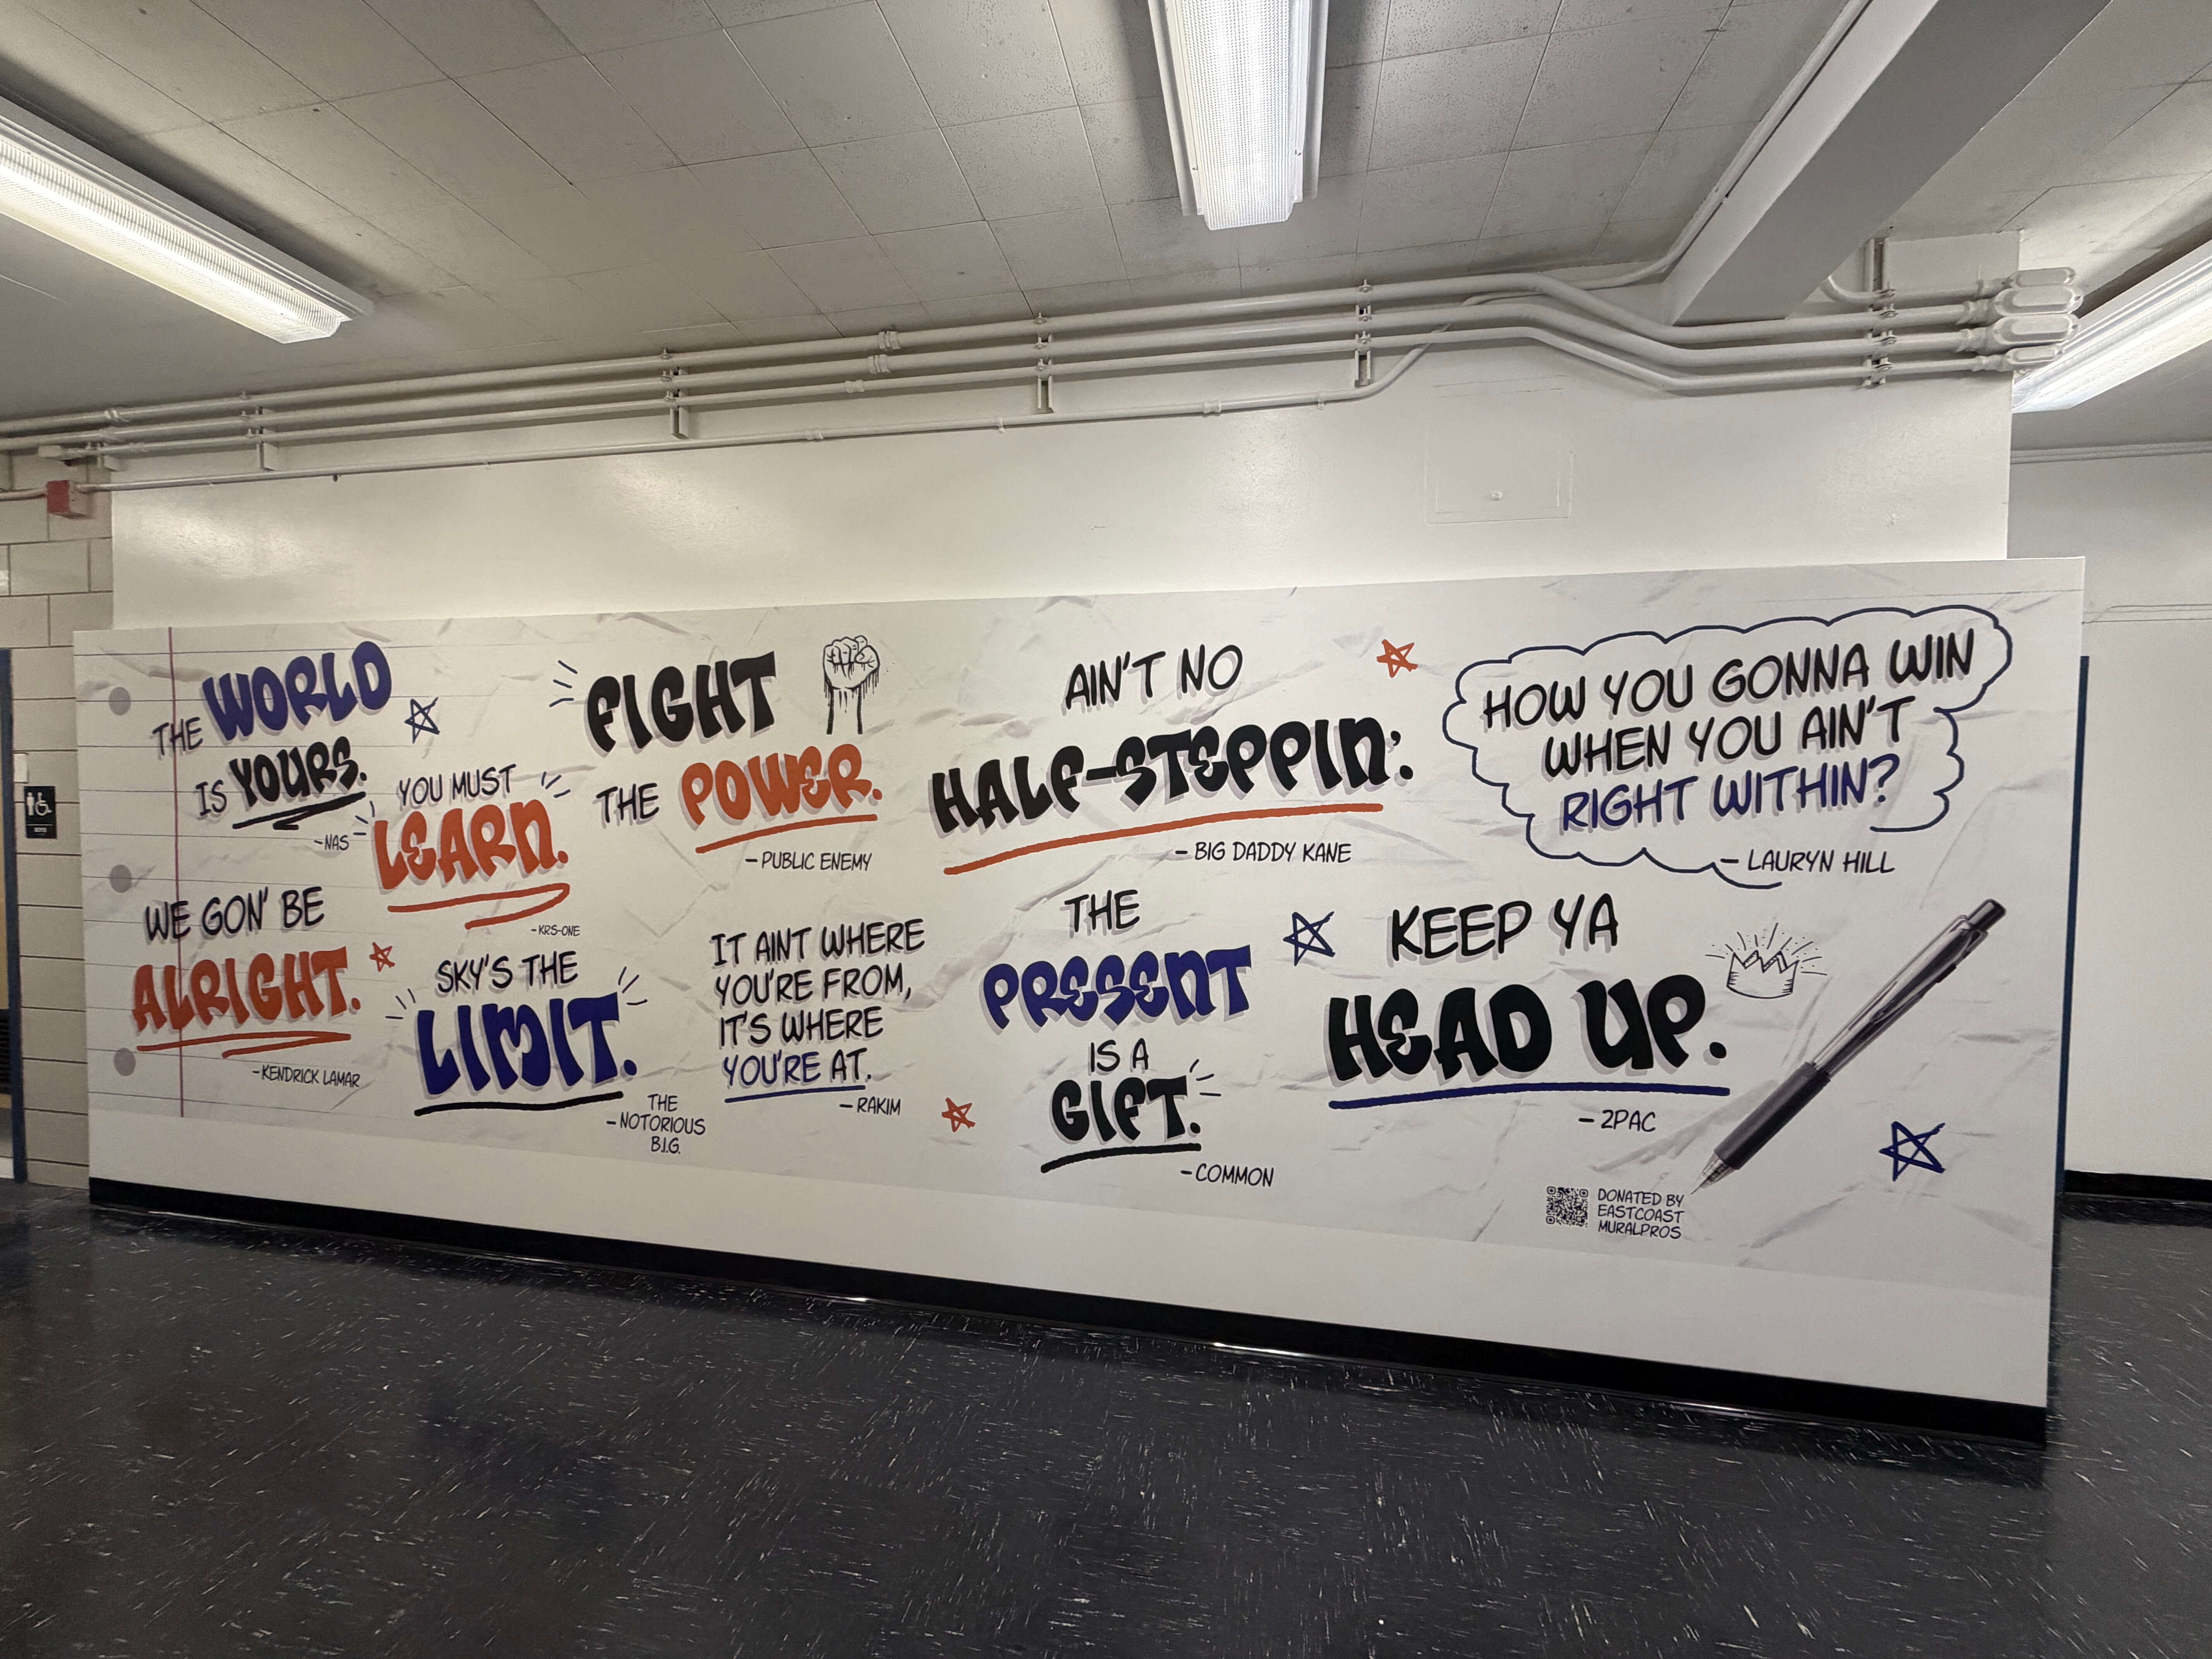 THE WORLD
IS YOURS.
-NAS
YOU MUST
LEARN.
-KRS-ONE
FIGHT
THE POWER.
- PUBLIC ENEMY
AIN'T NO
HALF-STEPPIN'.
- BIG DADDY KANE
HOW YOU GONNA WIN
WHEN YOU AIN'T
RIGHT WITHIN?
- LAURYN HILL
WE GON' BE
ALRIGHT.
-KENDRICK LAMAR
SKY'S THE
LIMIT.
THE
- NOTORIOUS
B.I.G.
IT AINT WHERE
YOU'RE FROM,
IT'S WHERE
YOU'RE AT.
- RAKIM
THE
PRESENT
IS A
GIFT.
- COMMON
KEEP YA
HEAD UP.
- 2PAC
DONATED BY
EASTCOAST
MURALPROS